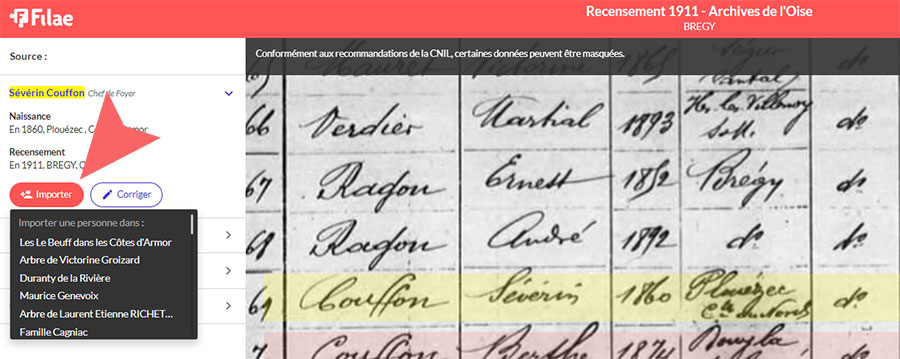 Filae
Recensement 1911 - Archives de l'Oise
BREGY
Source :
Conformément aux recommandations de la CNIL, certaines données peuvent être masquées.
Séverin Couffon Chef de Foyer
Naissance
En 1860, Plouézec ,
Recensement
En 1911, BREGY,
Importer
Corriger
Importer une personne dans :
Les Le Beuff dans les Côtes d'Armor
Arbre de Victorine Groizard
Duranty de la Rivière
Maurice Genevoix
Arbre de Laurent Etienne RICHET...
Famille Cagniac
Mauret Victorine 1865
66 Verdier Martial 1893 do
67 Ragon Ernest 1852 Brégy do
68 Ragon André 1892 do do
69 Couffon Séverin 1860 Plouézec do
Couffon Berthe 1874